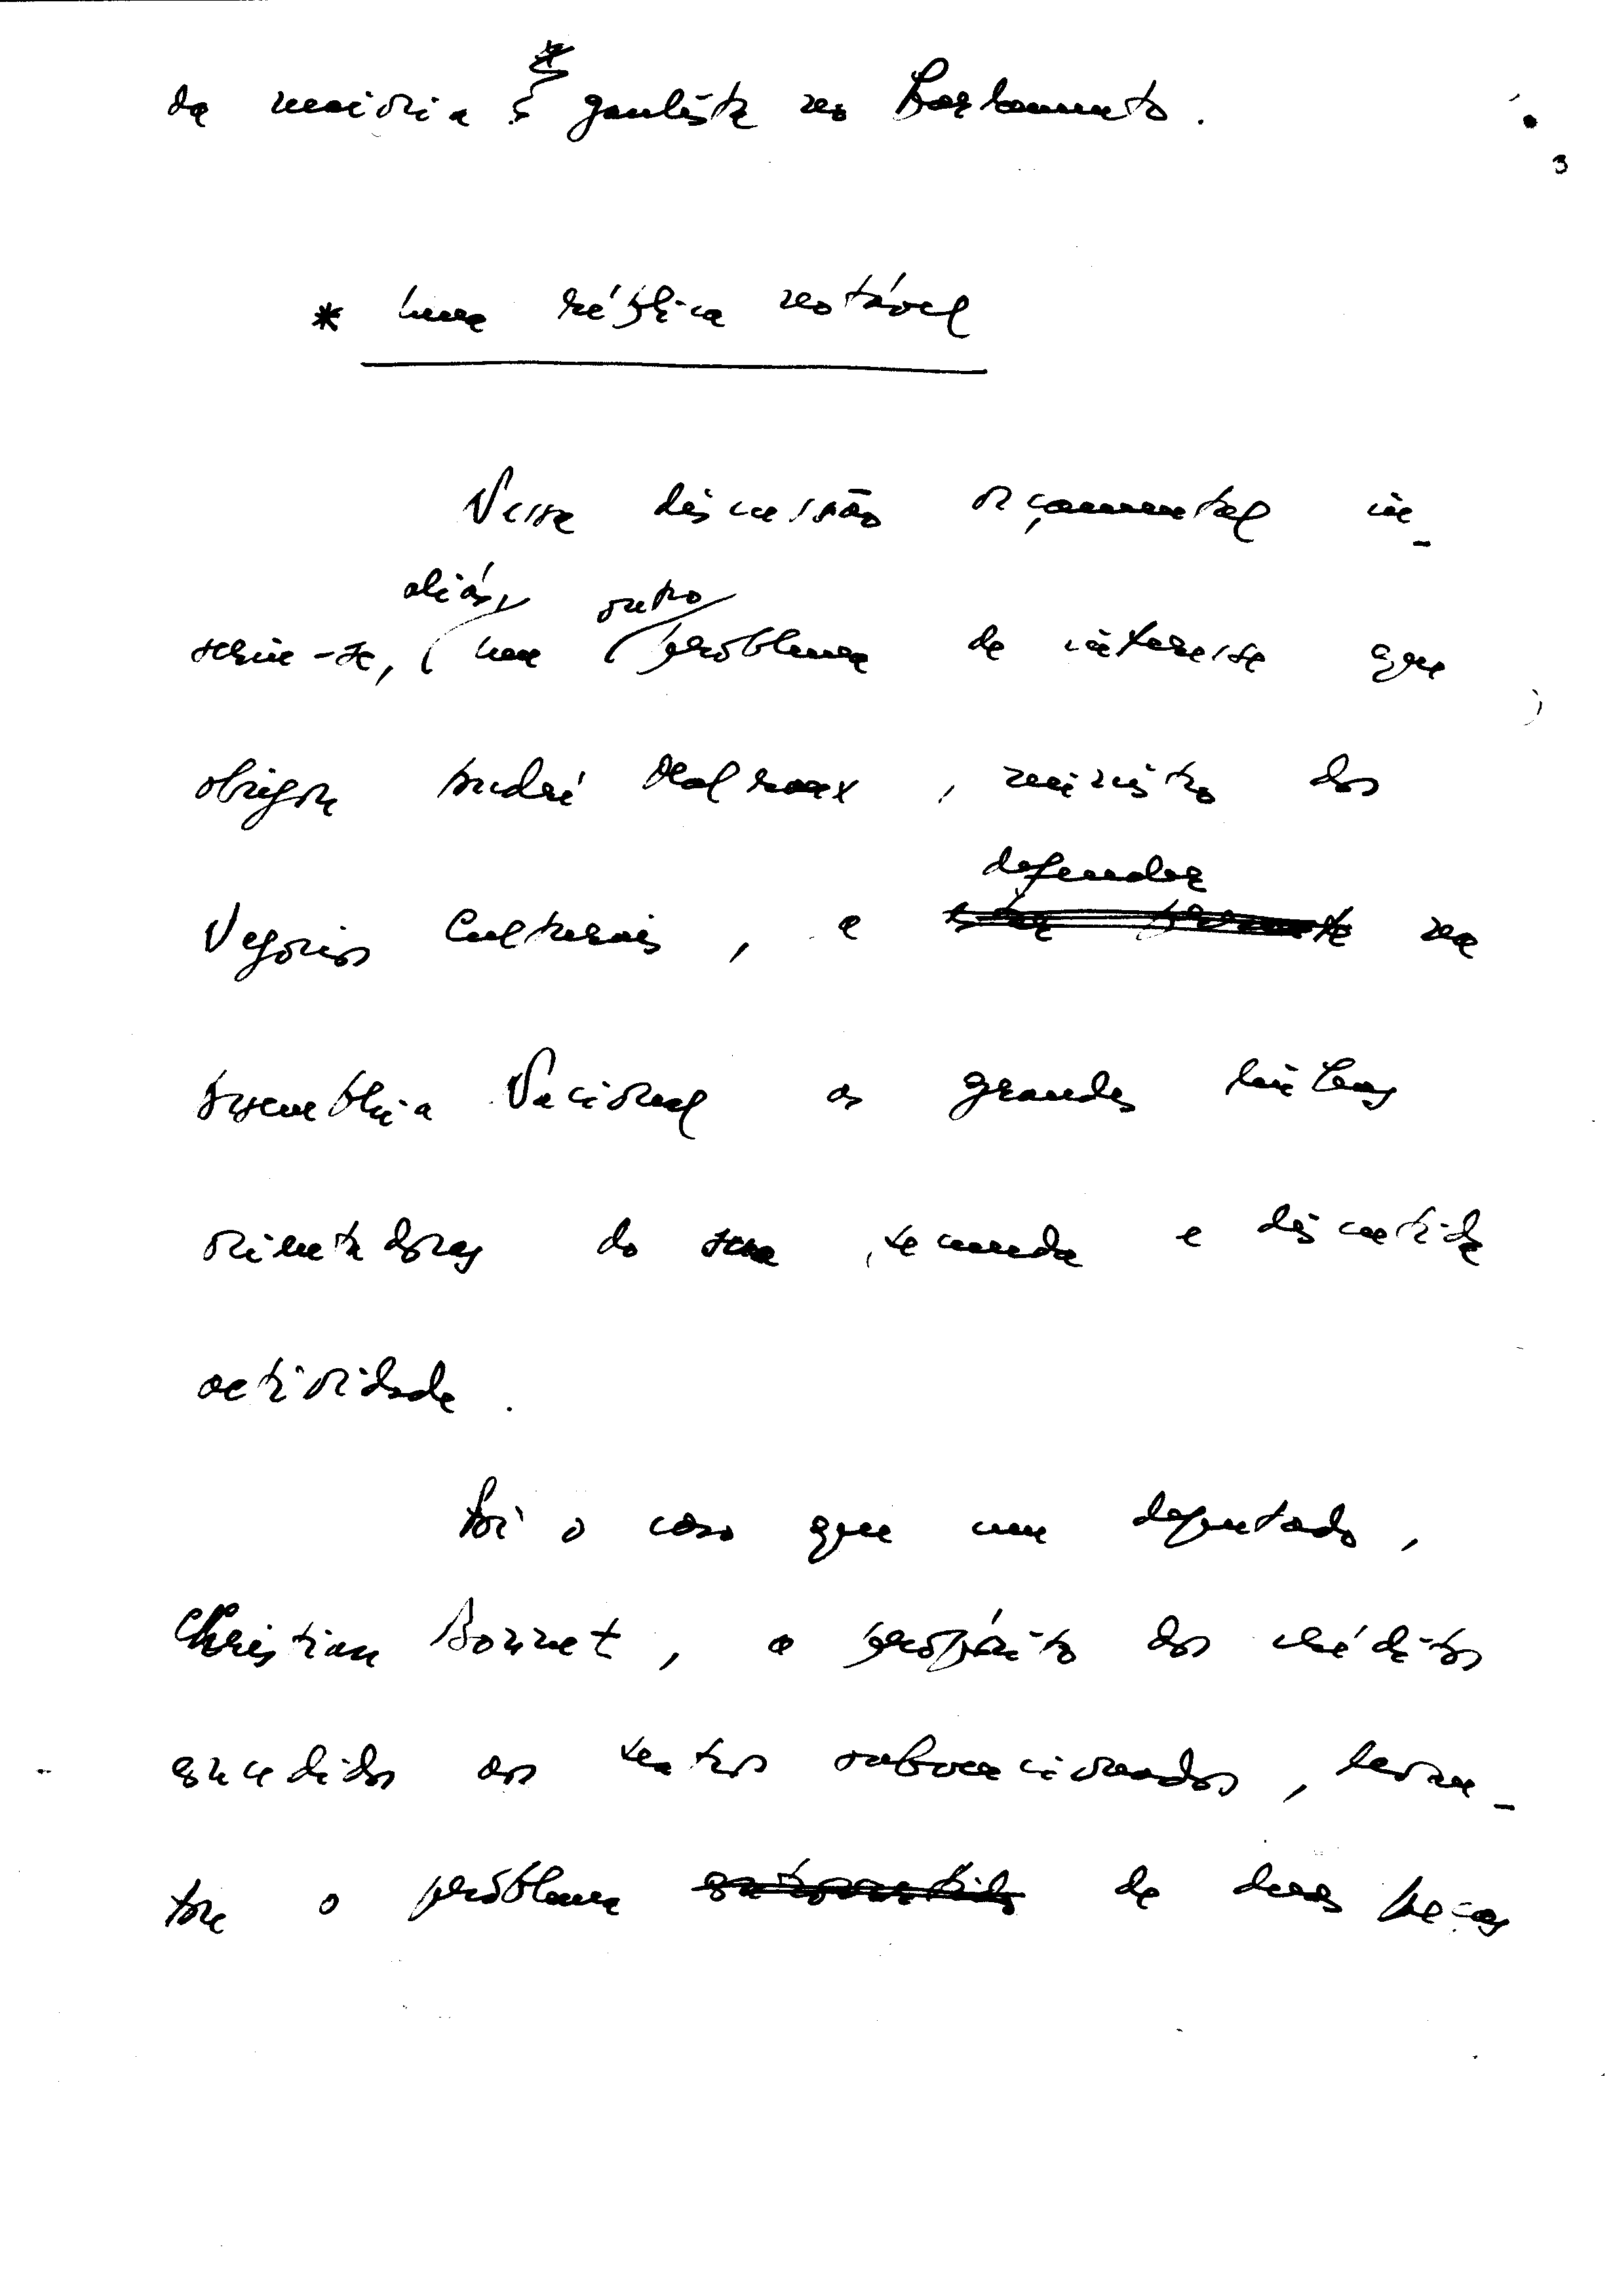 da maioria gaulista no Parlamento.
3
* Uma réplica notável
Nessa discussão orçamental in-
seriu-se, aliás, um outro problema de interesse que
obrigou André Malraux, ministro dos
defender
Negócios Culturais, a na
Assembleia Nacional as grandes linhas
orientadoras da sua fecunda e discutida
actividade.
Foi o caso que um deputado,
Christian Bonnet, a propósito dos créditos
concedidos aos teatros subvencionados, levan-
tou o problema de duas peças